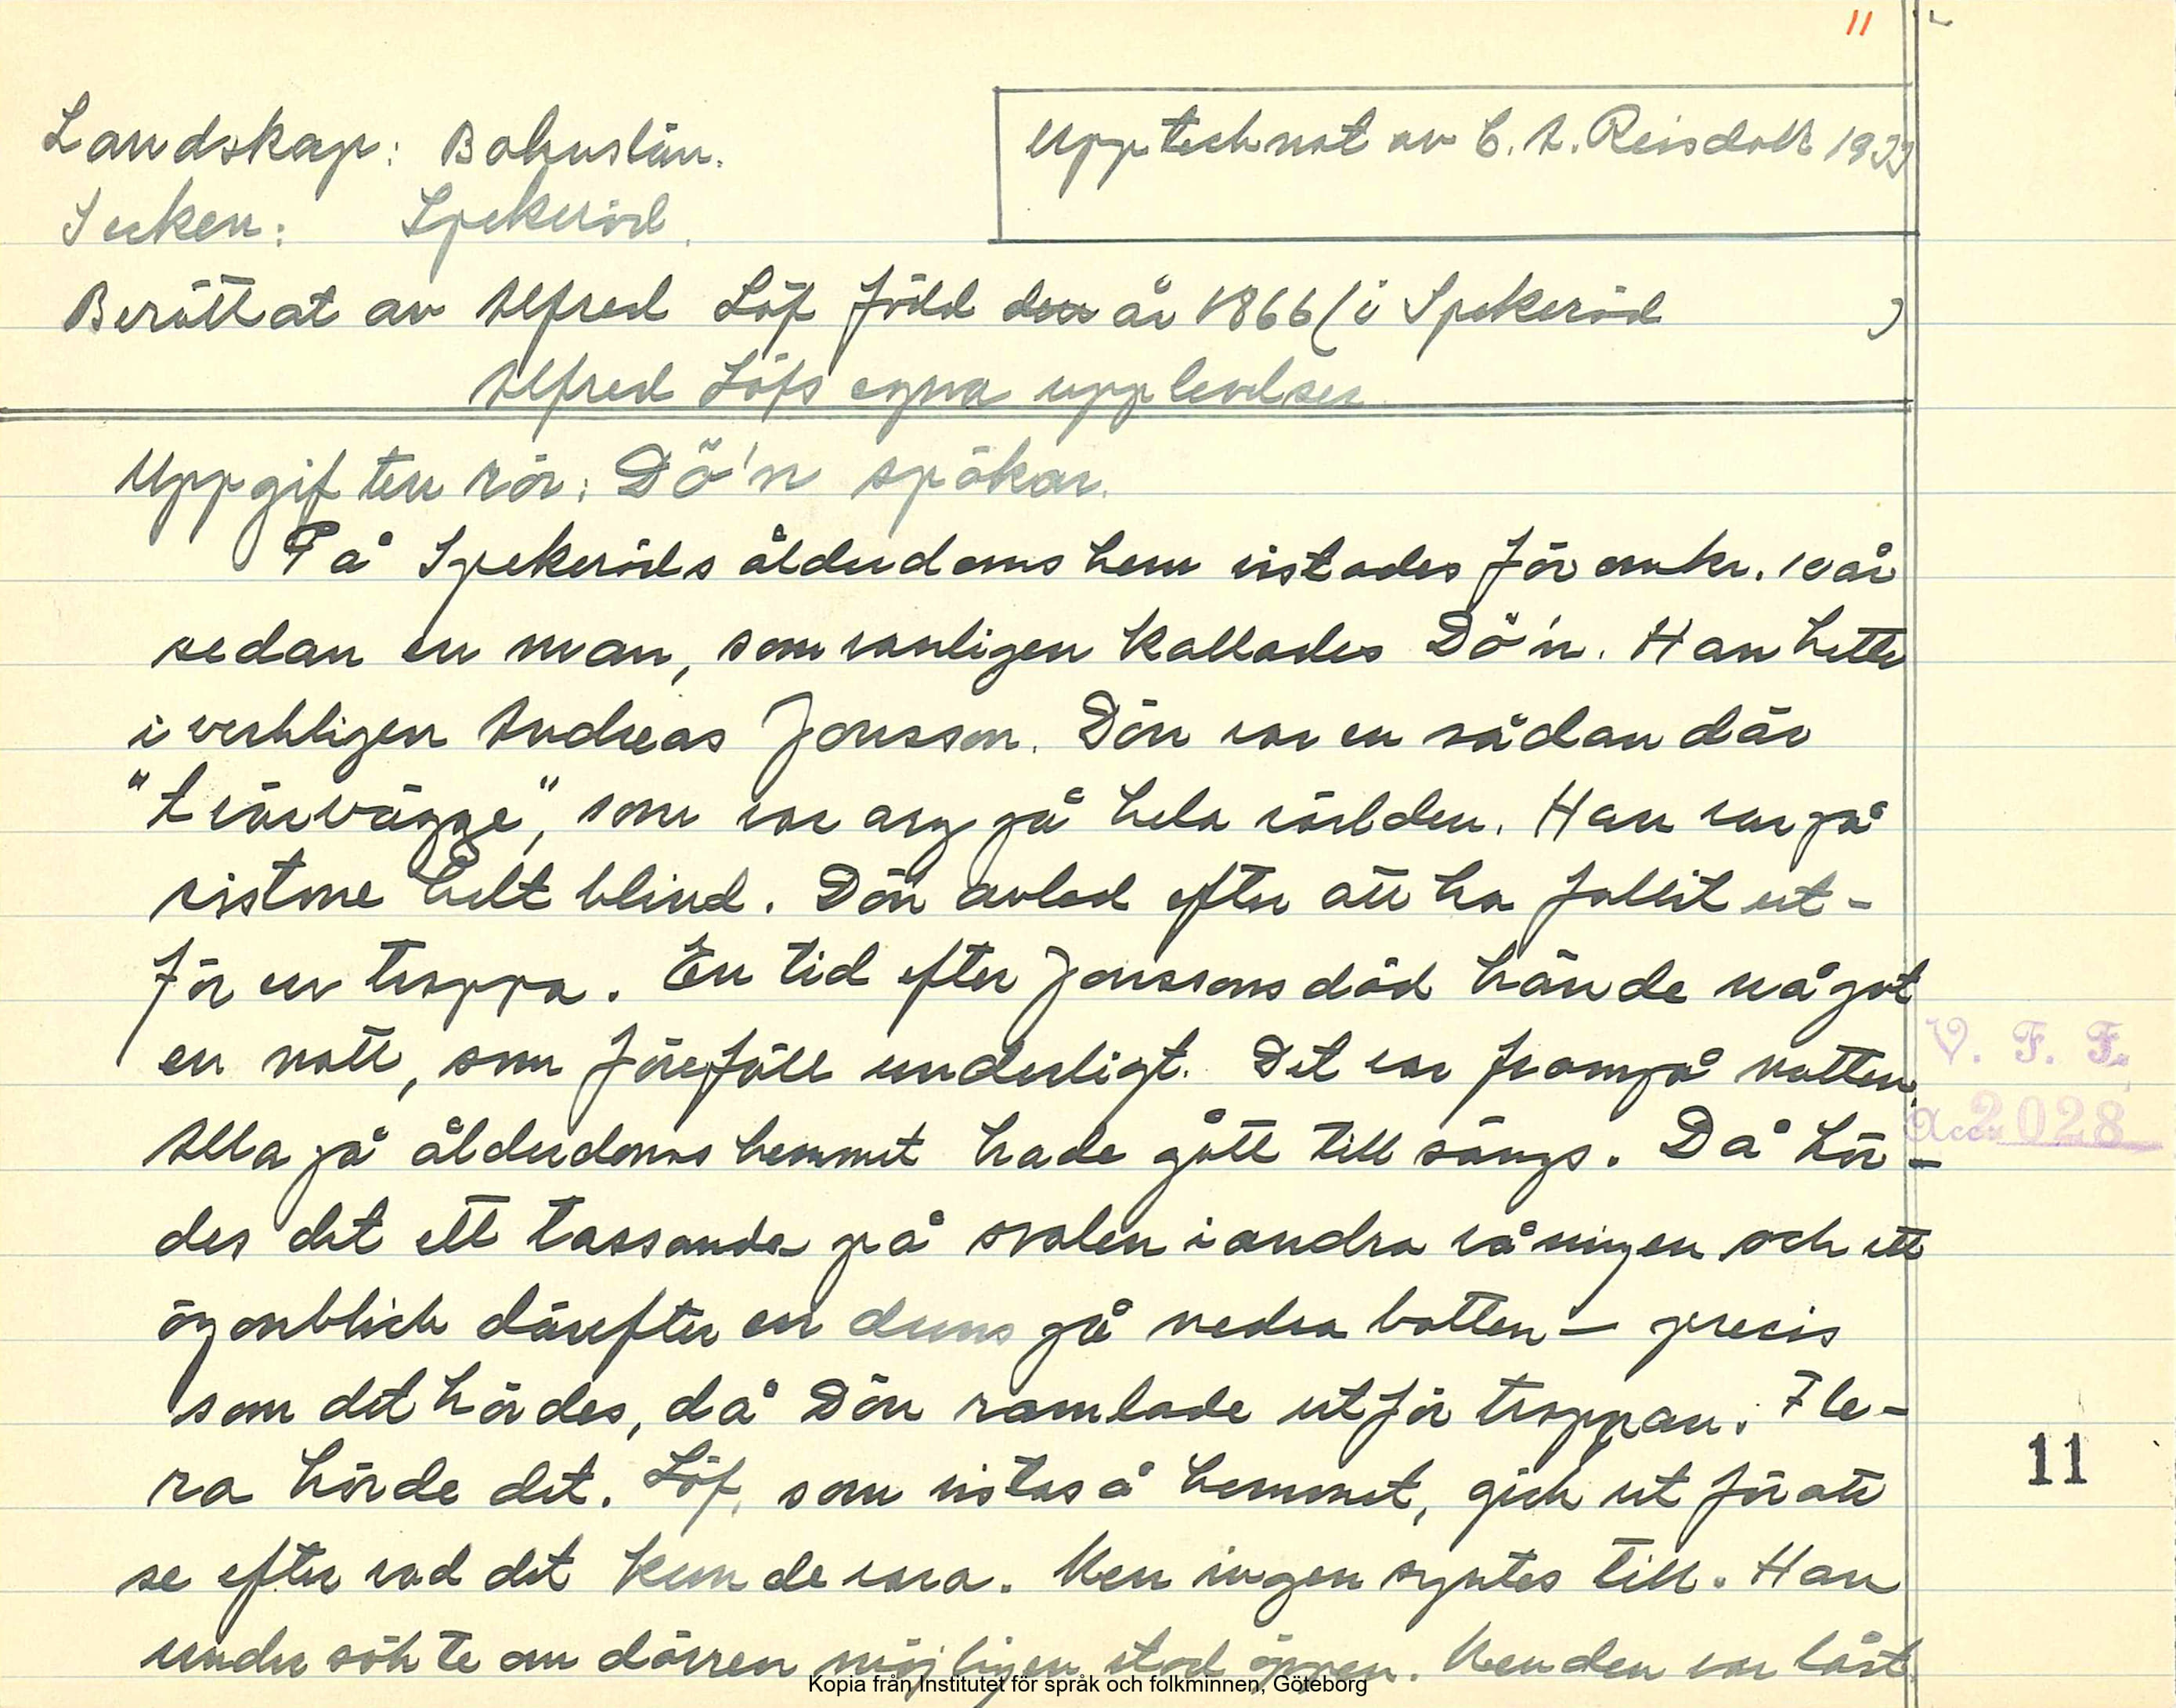 11
Landskap: Bohuslän.
Upptecknat av C. A. Reisdalh 1922
Socken: Spekeröd.
Berättat av Alfred Löf född den år 1866 (i Spekeröd )
Alfred Löfs egna upplevelser
Uppgiften rör: Dö'n spökar.
På Spekeröds ålderdomshem vistades för omkr. 10 år
sedan en man, som vanligen kallades Dö'n. Han hette
i verkligen Andreas Jonsson. Dön var en sådan där
"tvärvägge", som var arg på hela världen. Han var på
sistone helt blind. Dön avled efter att ha fallit ut-
för en trappa. En tid efter Jonssons död hände något
en natt, som föreföll underligt. Det var frampå natten.
Alla på ålderdomshemmet hade gått till sängs. Då hör-
V. F. F.
Acc. 2028
des det ett tassande på svalen i andra våningen och ett
ögonblick därefter en duns på nedra botten – precis
som det hördes, då Dön ramlade utför trappan. Fle-
ra hörde det. Löf, som vistas å hemmet, gick ut för att
11
se efter vad det kunde vara. Men ingen syntes till. Han
undersökte om dörren möjligen stod öppen. Men den var låst.
Kopia från Institutet för språk och folkminnen, Göteborg